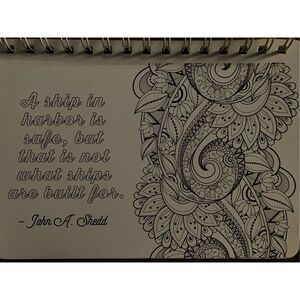 A ship in
harbor is
safe, but
that is not
what ships
are built for.
- John A. Shedd